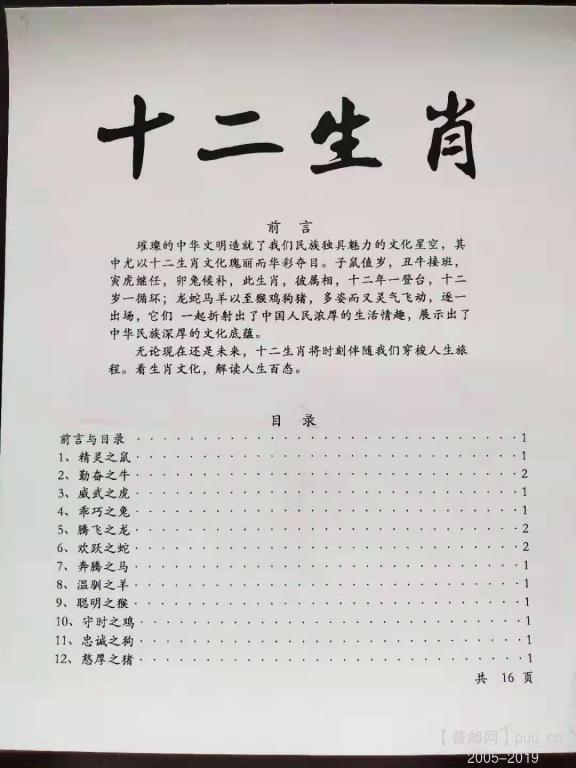 十二生肖
前 言
璀璨的中华文明造就了我们民族独具魅力的文化星空，其
中尤以十二生肖文化瑰丽而华彩夺目。子鼠值岁，丑牛接班，
寅虎继任，卯兔候补，此生肖，彼属相，十二年一登台，十二
岁一循环；龙蛇马羊以至猴鸡狗猪，多姿而又灵气飞动，逐一
出场，它们 一起折射出了中国人民浓厚的生活情趣，展示出了
中华民族深厚的文化底蕴。
无论现在还是未来，十二生肖将时刻伴随我们穿梭人生旅
程。看生肖文化，解读人生百态。
目 录
前言与目录 · · · · · · · · · · · · · · · · · · · · · · · · · · · · · 1
1、精灵之鼠 · · · · · · · · · · · · · · · · · · · · · · · · · · · · · 1
2、勤奋之牛 · · · · · · · · · · · · · · · · · · · · · · · · · · · · · 2
3、威武之虎 · · · · · · · · · · · · · · · · · · · · · · · · · · · · · 1
4、乖巧之兔 · · · · · · · · · · · · · · · · · · · · · · · · · · · · · 1
5、腾飞之龙 · · · · · · · · · · · · · · · · · · · · · · · · · · · · · 2
6、欢跃之蛇 · · · · · · · · · · · · · · · · · · · · · · · · · · · · · 2
7、奔腾之马 · · · · · · · · · · · · · · · · · · · · · · · · · · · · · 1
8、温驯之羊 · · · · · · · · · · · · · · · · · · · · · · · · · · · · · 1
9、聪明之猴 · · · · · · · · · · · · · · · · · · · · · · · · · · · · · 1
10、守时之鸡 · · · · · · · · · · · · · · · · · · · · · · · · · · · · · 1
11、忠诚之狗 · · · · · · · · · · · · · · · · · · · · · · · · · · · · · 1
12、憨厚之猪 · · · · · · · · · · · · · · · · · · · · · · · · · · · · · 1
共 16 页
【普邮网】puu.cn
2005-2019